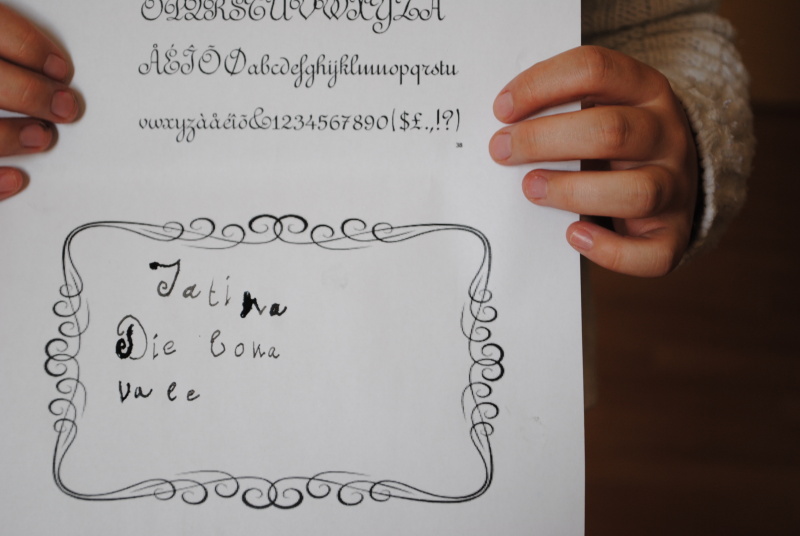 OPQRSTUVWXYZÀ
ÅÉÎÕØabcdefghijklmnopqrstu
vwxyzàåéîõ&1234567890($£.,!?)
Tatina
Die bona
vale